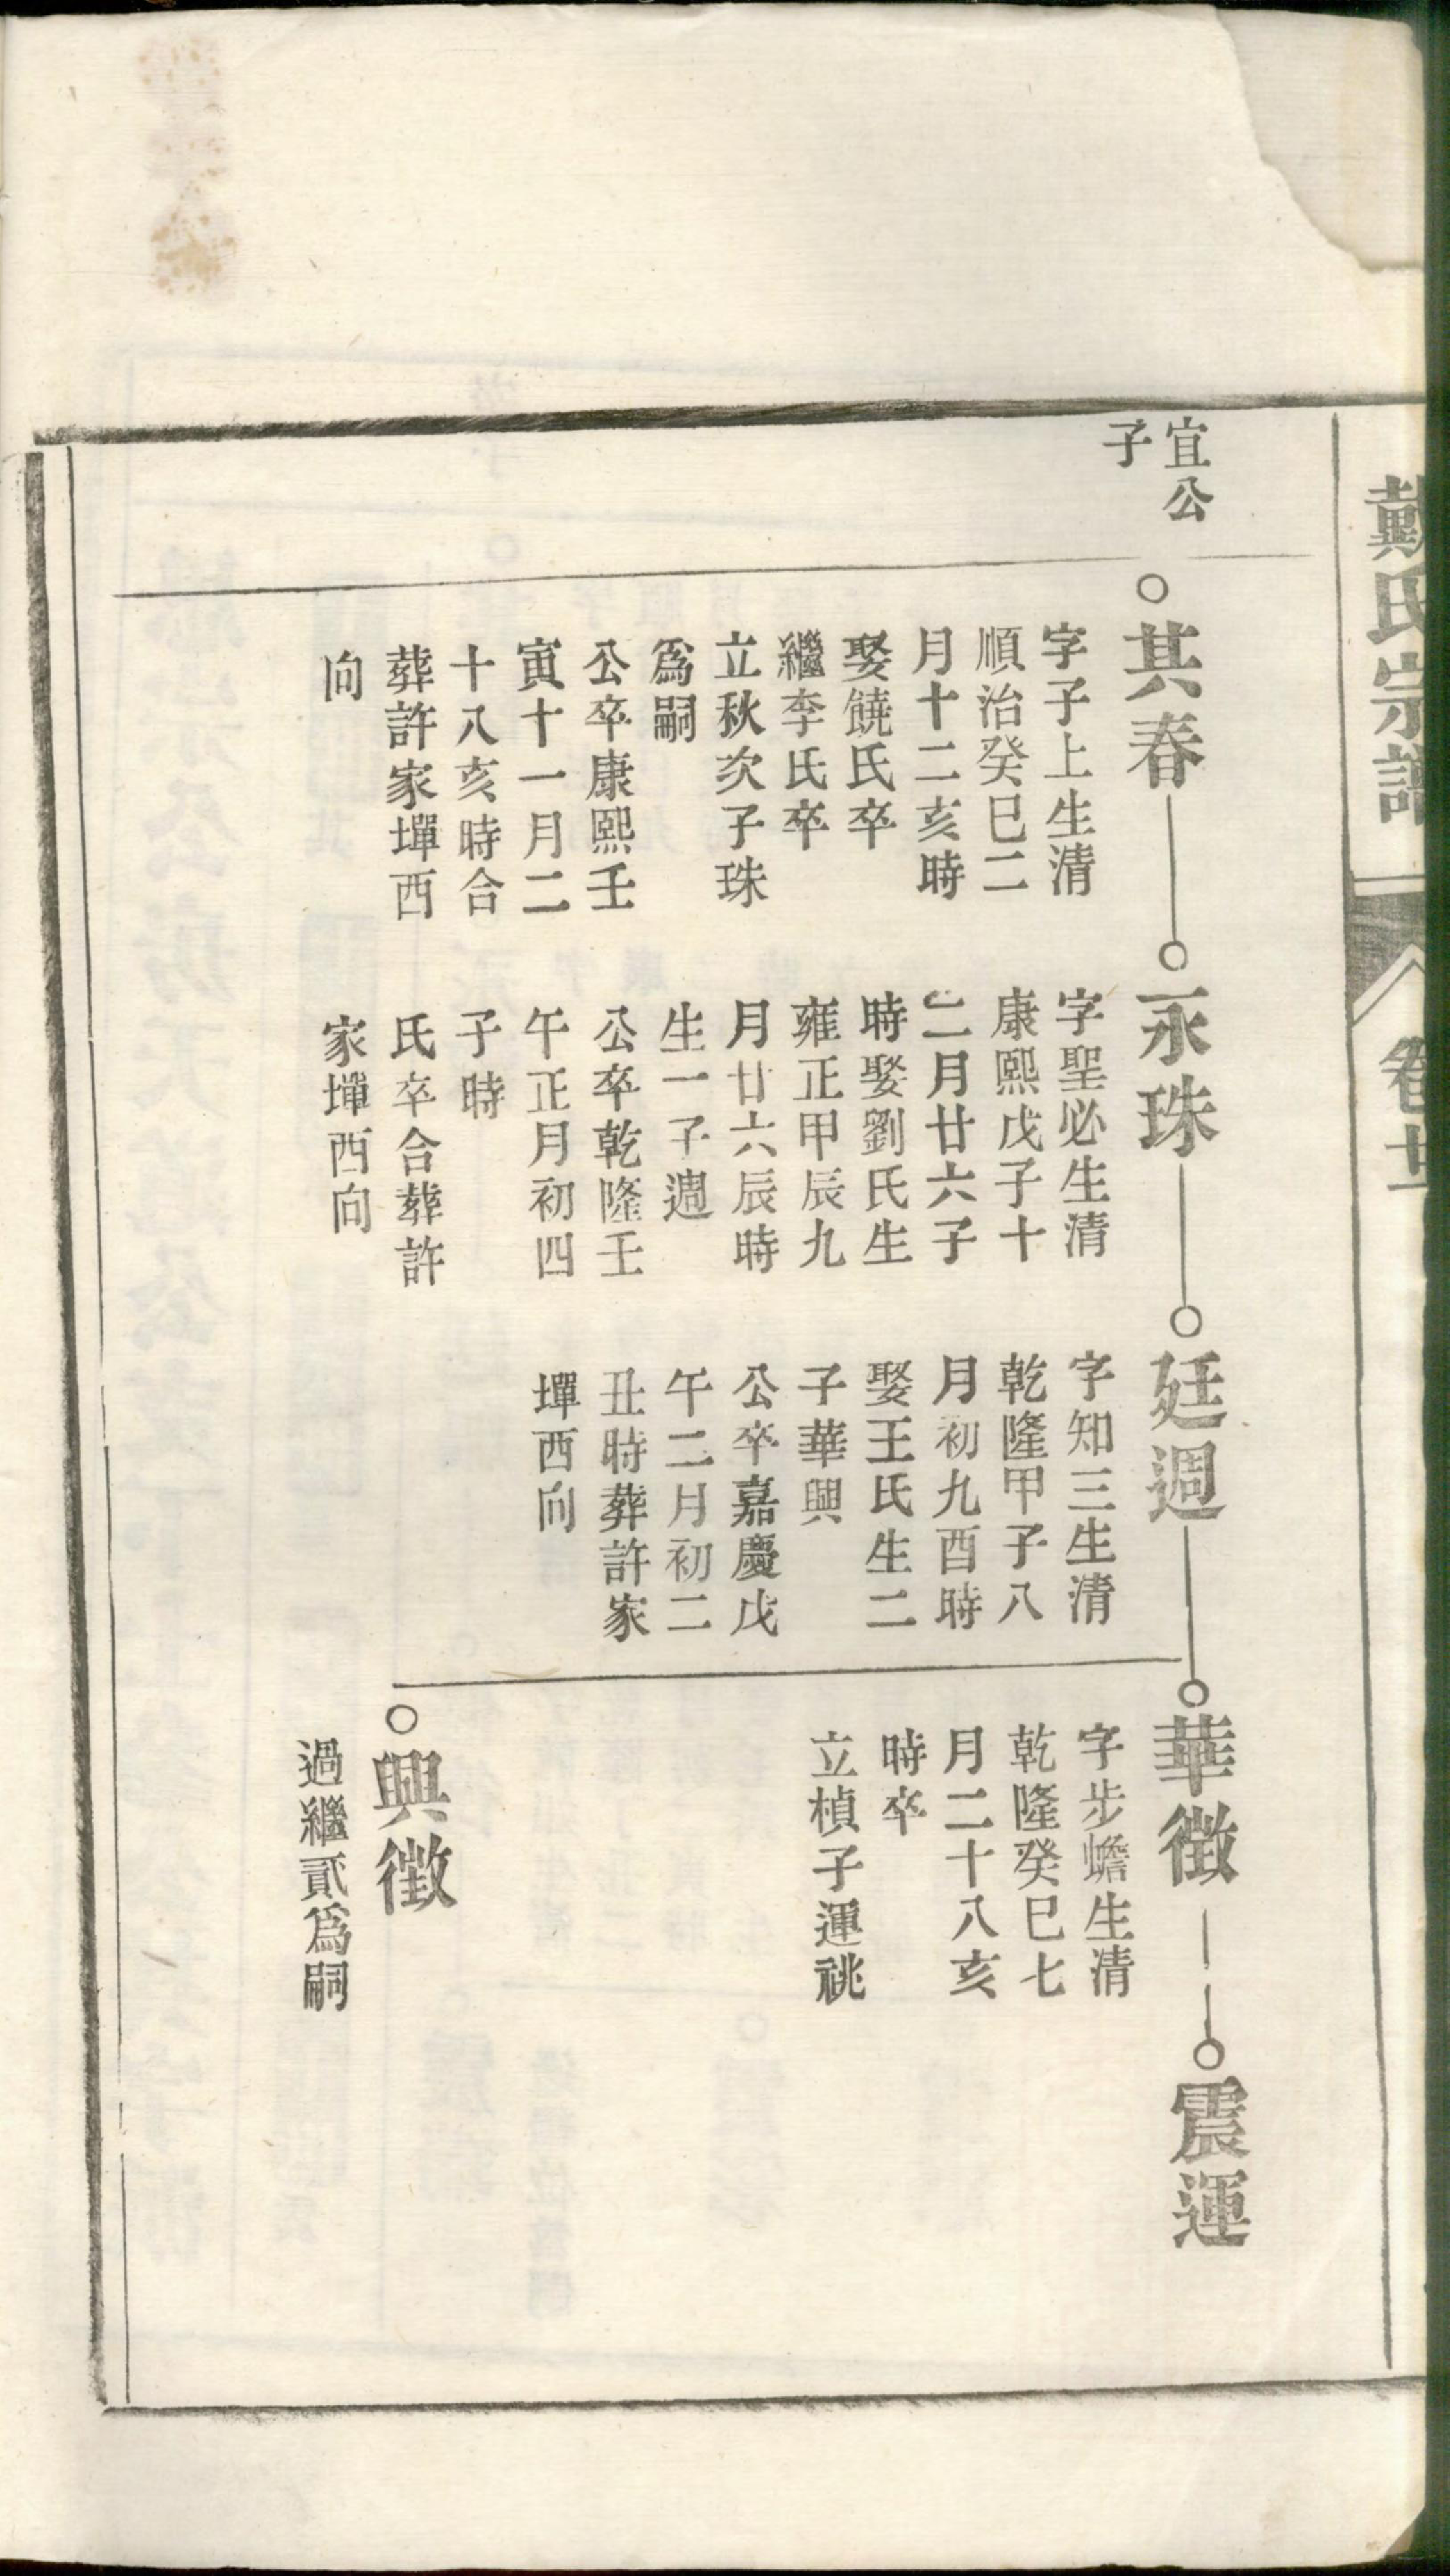 戴氏宗譜
卷廿
宜公
子
其春
字子上生清
順治癸巳二
月十二亥時
娶饒氏卒
繼李氏卒
立秋次子珠
爲嗣
公卒康熙壬
寅十一月二
十八亥時合
葬許家墠西
向
永珠
字聖必生清
康熙戊子十
二月廿六子
時娶劉氏生
雍正甲辰九
月廿六辰時
生一子週
公卒乾隆壬
午正月初四
子時
氏卒合葬許
家墠西向
廷週
字知三生清
乾隆甲子八
月初九酉時
娶王氏生二
子華興
公卒嘉慶戊
午二月初二
丑時葬許家
墠西向
華徵
字步蟾生清
乾隆癸巳七
月二十八亥
時卒
立楨子運祧
興徵
過繼貳爲嗣
震運